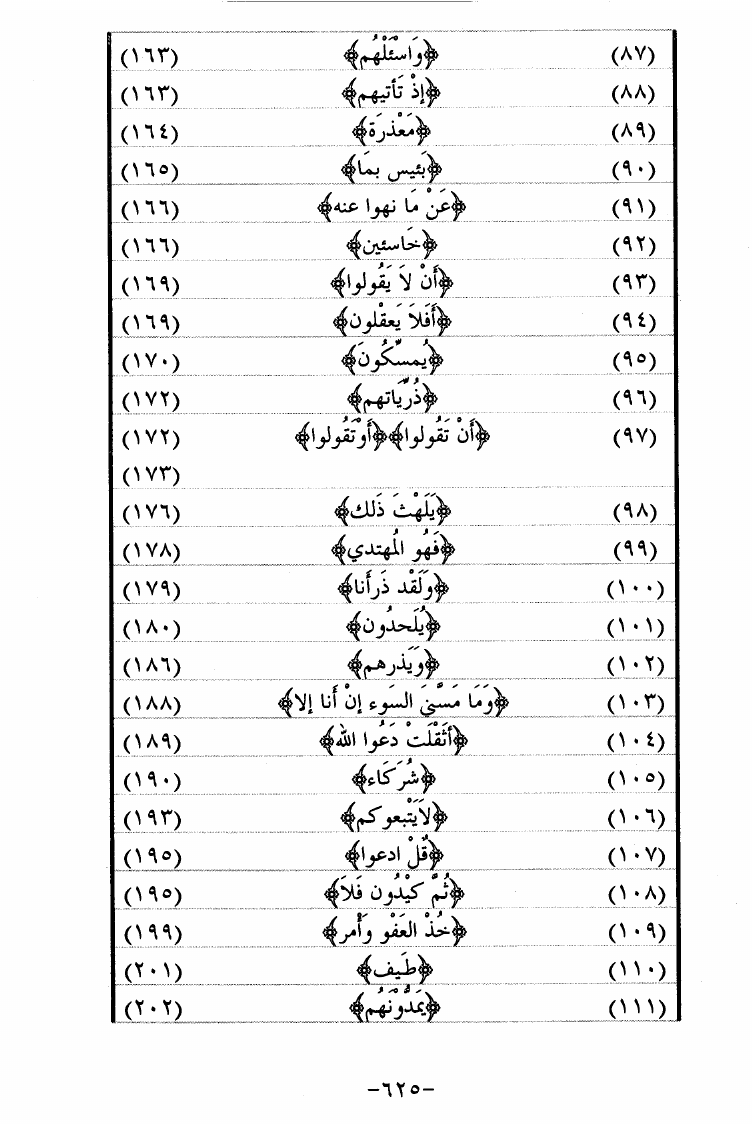 (٨٧) ﴿وَاسْئَلْهُم﴾ (١٦٣)
(٨٨) ﴿إذْ تَأتيهم﴾ (١٦٣)
(٨٩) ﴿مَعْذرَة﴾ (١٦٤)
(٩٠) ﴿بَئيس بمَا﴾ (١٦٥)
(٩١) ﴿عَنْ مَا نهوا عنه﴾ (١٦٦)
(٩٢) ﴿خَاسئين﴾ (١٦٦)
(٩٣) ﴿أَنْ لاَ يَقُولوا﴾ (١٦٩)
(٩٤) ﴿أَفَلاَ يَعقْلون﴾ (١٦٩)
(٩٥) ﴿يُمسِّكُونَ﴾ (١٧٠)
(٩٦) ﴿ذُرِّيَاتهم﴾ (١٧٢)
(٩٧) ﴿أَنْ تَقُولوا﴾﴿أَوْتَقُولوا﴾ (١٧٢)
(١٧٣)
(٩٨) ﴿يَلَهْثَ ذَلك﴾ (١٧٦)
(٩٩) ﴿فَهُو المُهتدي﴾ (١٧٨)
(١٠٠) ﴿وَلَقْد ذَرأَنا﴾ (١٧٩)
(١٠١) ﴿يُلَحدُون﴾ (١٨٠)
(١٠٢) ﴿وَيَذرهم﴾ (١٨٦)
(١٠٣) ﴿وَمَا مَسَّنيَ السوَء إنْ أَنا إلا﴾ (١٨٨)
(١٠٤) ﴿أثقْلَتْ دَعُوا الله﴾ (١٨٩)
(١٠٥) ﴿شُرَكَاء﴾ (١٩٠)
(١٠٦) ﴿لاَيَتْبعوكم﴾ (١٩٣)
(١٠٧) ﴿قُلْ ادعوا﴾ (١٩٥)
(١٠٨) ﴿ثُمَّ كيْدُون فَلاَ﴾ (١٩٥)
(١٠٩) ﴿خُذْ العَفْو وَأْمر﴾ (١٩٩)
(١١٠) ﴿طَيف﴾ (٢٠١)
(١١١) ﴿يَمَدُّوْنَهُم﴾ (٢٠٢)
-٦٢٥-